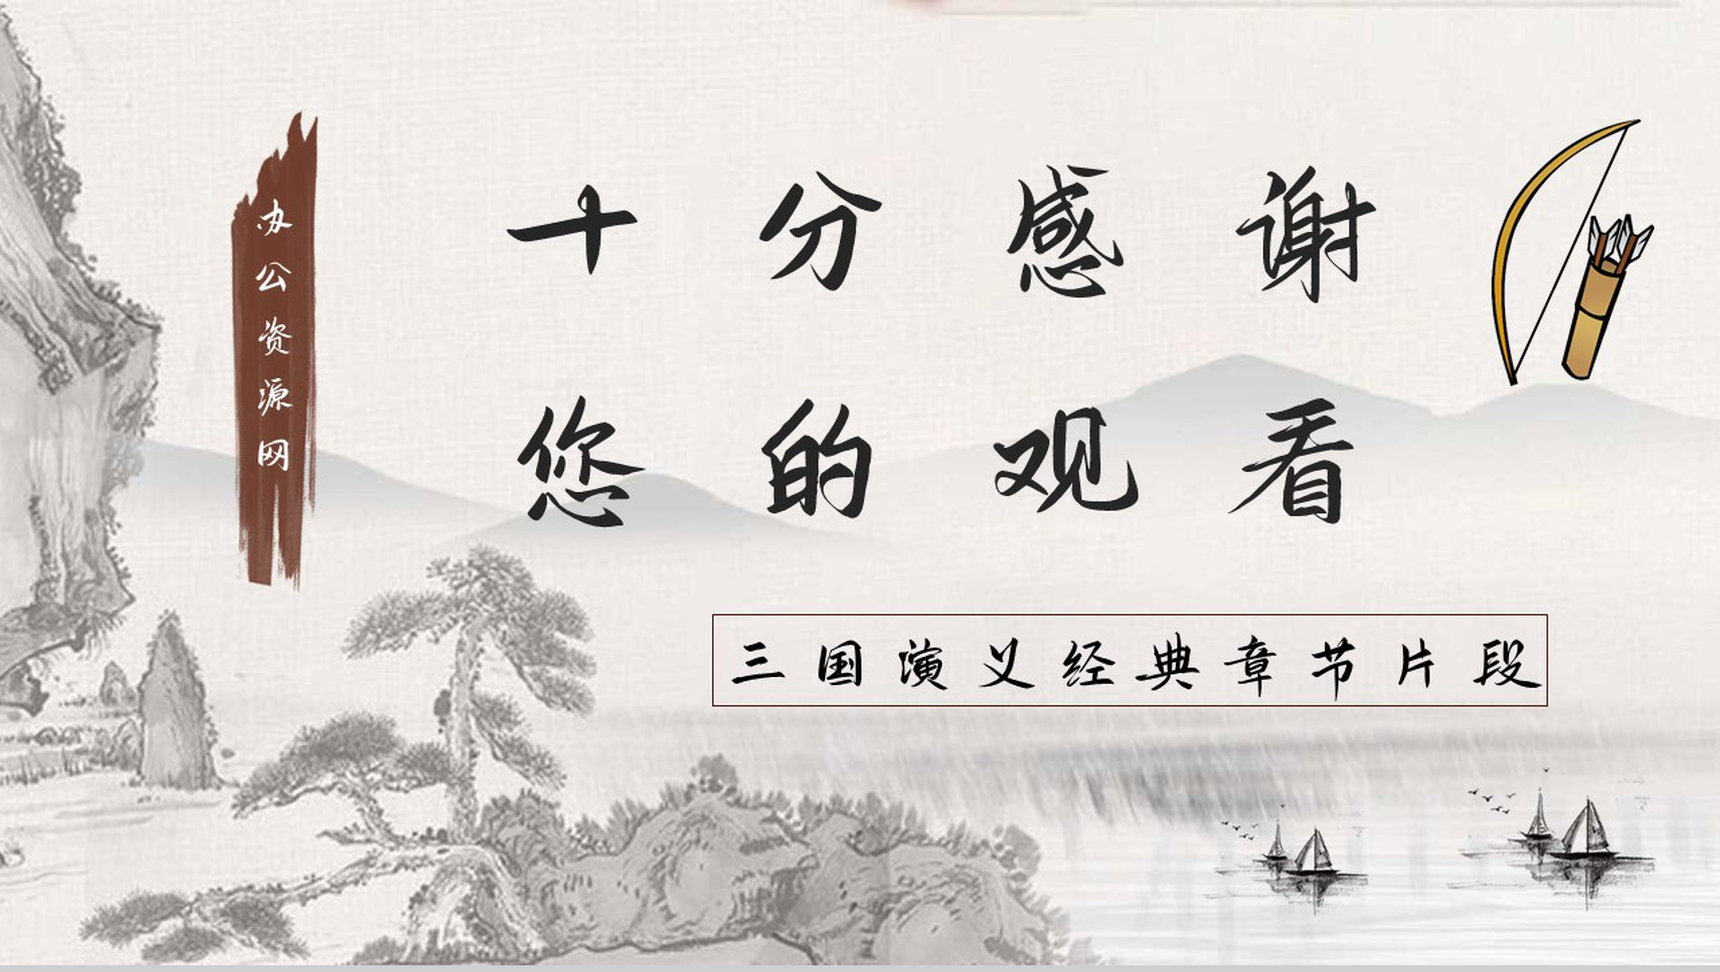 办公资源网
十分感谢
您的观看
三国演义经典章节片段